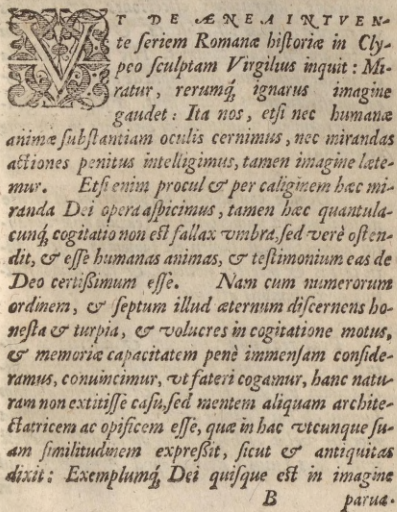 VT DE ÆNEA INTVEN-
te seriem Romanæ historiæ in Cly-
peo sculptam Virgilius inquit: Mi-
ratur, rerumq́; ignarus imagine
gaudet: Ita nos, etsi nec humanæ
animæ substantiam oculis cernimus, nec mirandas
actiones penitus intelligimus, tamen imagine læte-
mur. Etsi enim procul & per caliginem hæc mi-
randa Dei opera aspicimus, tamen hæc quantula-
cunq́; cogitatio non est fallax vmbra, sed verè osten-
dit, & esse humanas animas, & testimonium eas de
Deo certissimum esse. Nam cum numerorum
ordinem, & septum illud æternum discernens ho-
nesta & turpia, & volucres in cogitatione motus,
& memoriæ capacitatem penè immensam conside-
ramus, conuincimur, vt fateri cogamur, hanc natu-
ram non extitisse casu, sed mentem aliquam archite-
ctatricem ac opificem esse, quæ in hac vtcunque su-
am similitudinem expressit, sicut & antiquitas
dixit: Exemplumq́; Dei quisque est in imagine
B parua.